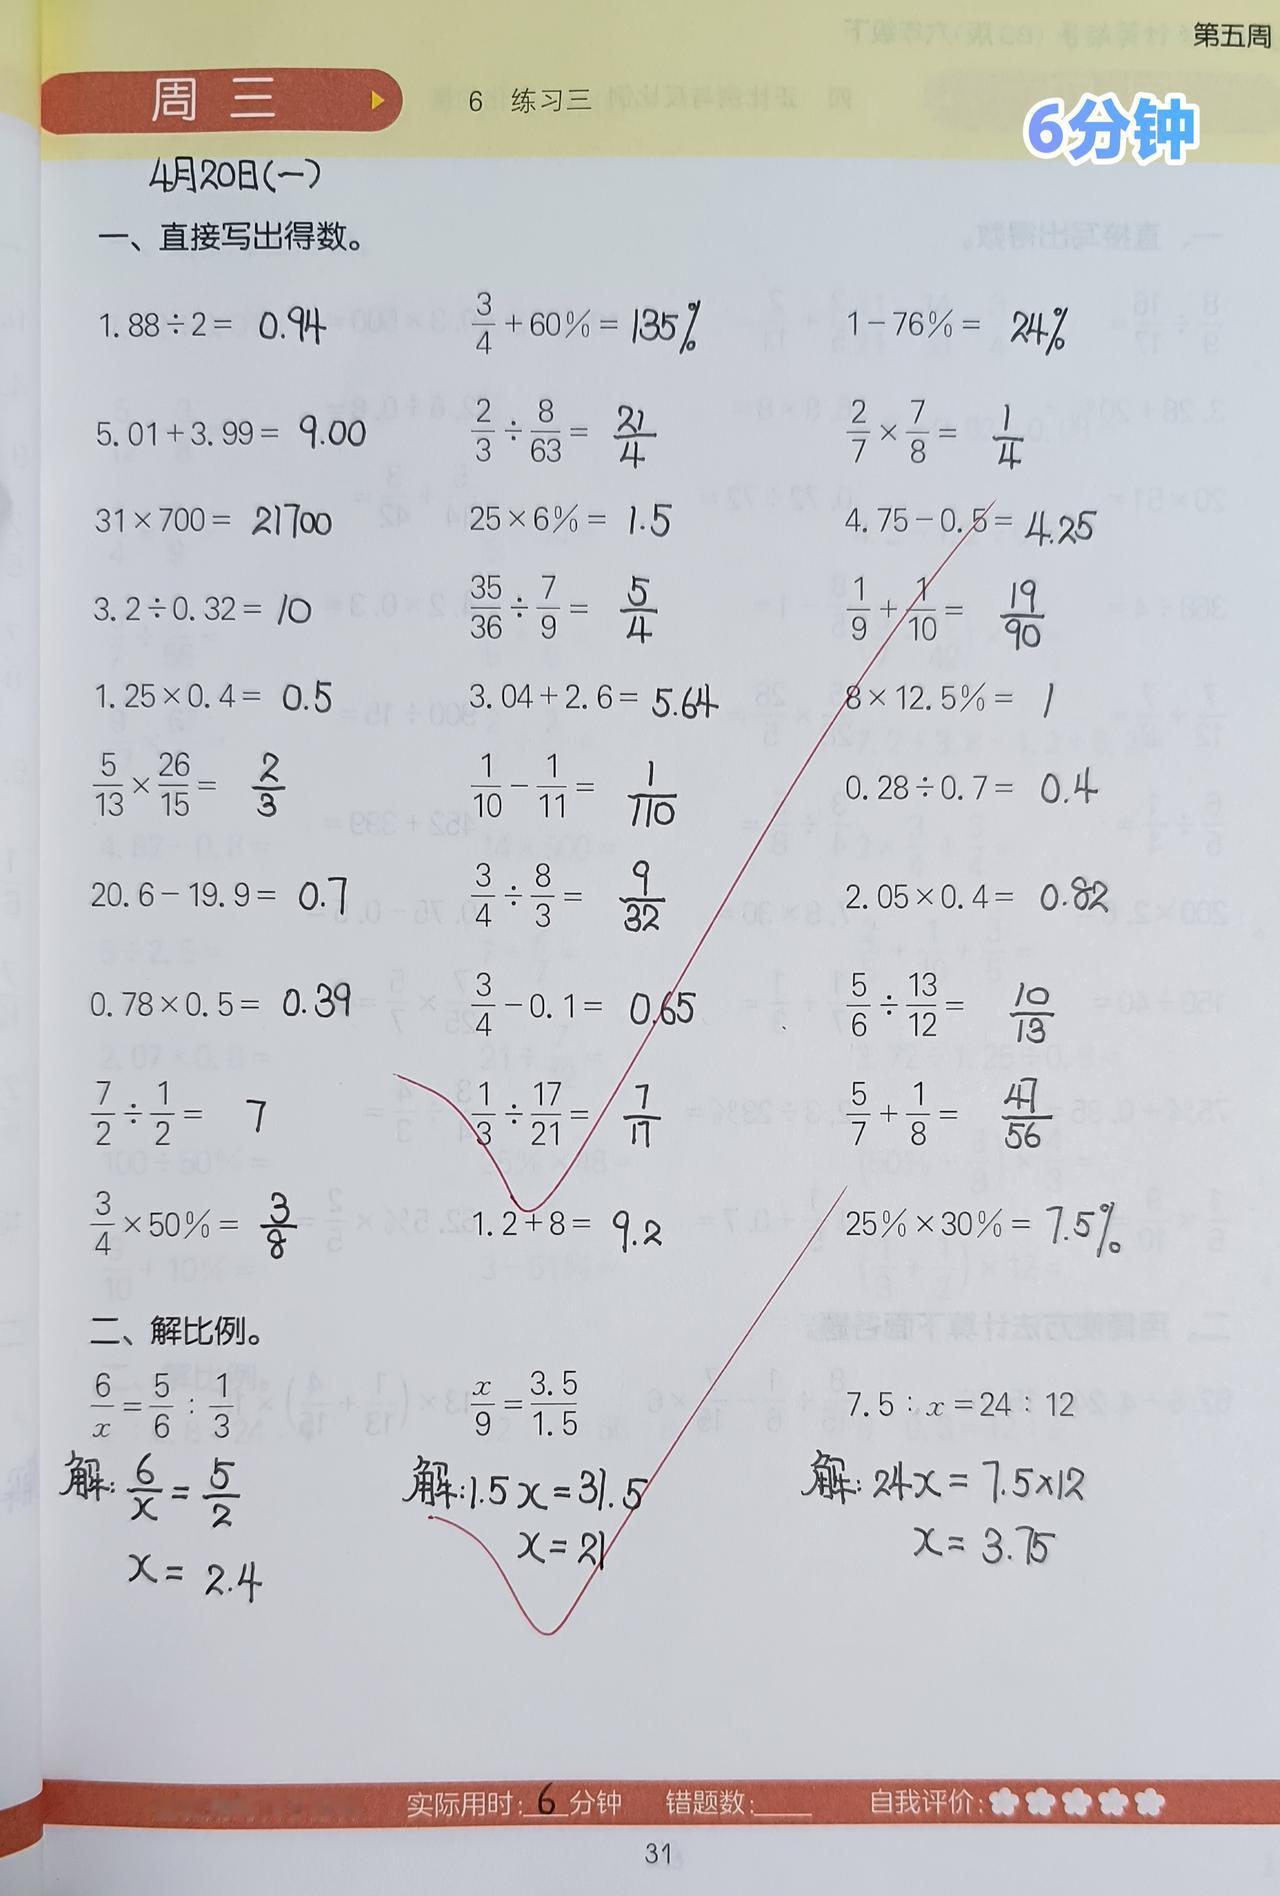 第五周
周三
6 练习三
6分钟
4月20日(一)
一、直接写出得数。
1.88÷2= 0.94 3/4+60%= 135% 1-76%= 24%
5.01+3.99= 9.00 2/3÷8/63= 21/4 2/7×7/8= 1/4
31×700= 21700 25×6%= 1.5 4.75-0.5= 4.25
3.2÷0.32= 10 35/36÷7/9= 5/4 1/9+1/10= 19/90
1.25×0.4= 0.5 3.04+2.6= 5.64 8×12.5%= 1
5/13×26/15= 2/3 1/10-1/11= 1/110 0.28÷0.7= 0.4
20.6-19.9= 0.7 3/4÷8/3= 9/32 2.05×0.4= 0.82
0.78×0.5= 0.39 3/4-0.1= 0.65 5/6÷13/12= 10/13
7/2÷1/2= 7 1/3÷17/21= 7/17 5/7+1/8= 47/56
3/4×50%= 3/8 1.2+8= 9.2 25%×30%= 7.5%
二、解比例。
6/x=5/6:1/3 x/9=3.5/1.5 7.5:x=24:12
解:6/x=5/2 解:1.5x=31.5 解:24x=7.5×12
x=2.4 x=21 x=3.75
实际用时:6分钟 错题数:____ 自我评价:
31